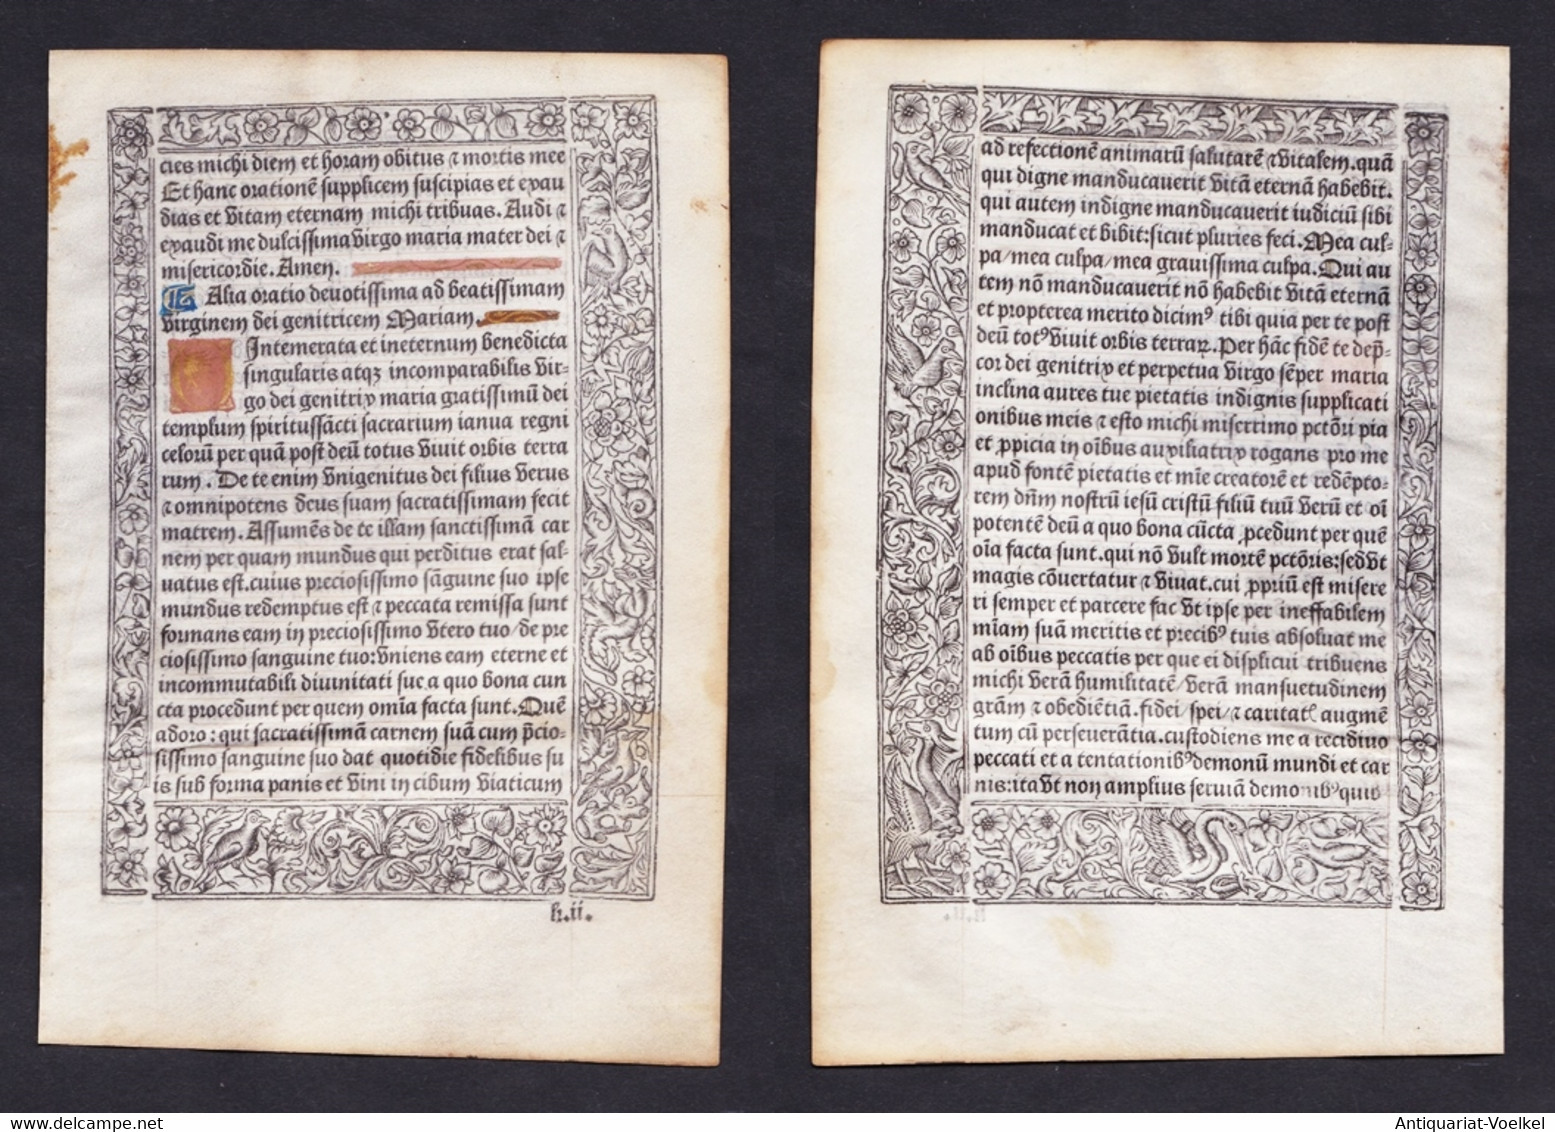 cies michi diem et horam obitus ⁊ mortis mee
Et hanc orationē supplicem suscipias et exau
dias et vitam eternam michi tribuas. Audi ⁊
exaudi me dulcissima virgo maria mater dei ⁊
misericordie. Amen.
Alia oratio devotissima ad beatissimam
virginem dei genitricem Mariam.
Intemerata et ineternum benedicta
singularis atqꝫ incomparabilis vir-
go dei genitrix maria gratissimū dei
templum spiritussācti sacrarium ianua regni
celorū per quā post deū totus vivit orbis terra
rum. De te enim vnigenitus dei filius verus
⁊ omnipotens deus suam sacratissimam fecit
matrem. Assumēs de te illam sanctissimā car
nem per quam mundus qui perditus erat sal-
uatus est. cuius preciosissimo sāguine suo ipse
mundus redemptus est ⁊ peccata remissa sunt
formans eam in preciosissimo vtero tuo / de pre
ciosissimo sanguine tuo: vniens eam eterne et
incommutabili diuinitati sue a quo bona cun
cta procedunt per quem omīa facta sunt. Quē
adoro: qui sacratissimā carnem suā cum p̄cio-
sissimo sanguine suo dat quotidie fidelibus su
is sub forma panis et vini in cibum viaticum
h.ii.
ad refectionē animarū salutarē ⁊ vitalem. quā
qui digne manducauerit vitā eternā habebit.
qui autem indigne manducauerit iudiciū sibi
manducat et bibit: sicut pluries feci. Mea cul-
pa / mea culpa / mea grauissima culpa. Qui au
tem nō manducauerit nō habebit vitā eternā
et propterea merito dicimꝰ tibi quia per te post
deū totꝰ vivit orbis terraꝝ. Per hāc fidē te dep̄-
cor dei genitrix et perpetua virgo sēper maria
inclina aures tue pietatis indignis supplicati
onibus meis ⁊ esto michi miserrimo pctōri pia
et ꝓpicia in oībus auxiliatrix rogans pro me
apud fontē pietatis et mīe creatorē et redēpto-
rem dn̄m nostrū iesū cristū filiū tuū verū et oī
potentē deū a quo bona cūcta ꝓcedunt per quē
oīa facta sunt. qui nō vult mortē pctōris: sed vt
magis cōuertatur ⁊ viuat. cui ꝓpriū est misere
ri semper et parcere fac vt ipse per ineffabilem
mīam suā meritis et precibꝰ tuis absoluat me
ab oībus peccatis per que ei displicui tribuens
michi verā humilitatē / verā mansuetudinem
grām ⁊ obediētiā. fidei / spei / ⁊ caritatꝭ augmē
tum cū perseuerātia. custodiens me a recidiuo
peccati et a tentationibꝰ demonū mundi et car
nis: ita vt non amplius seruiā demonibꝰ quib
Antiquariat-Voelkel